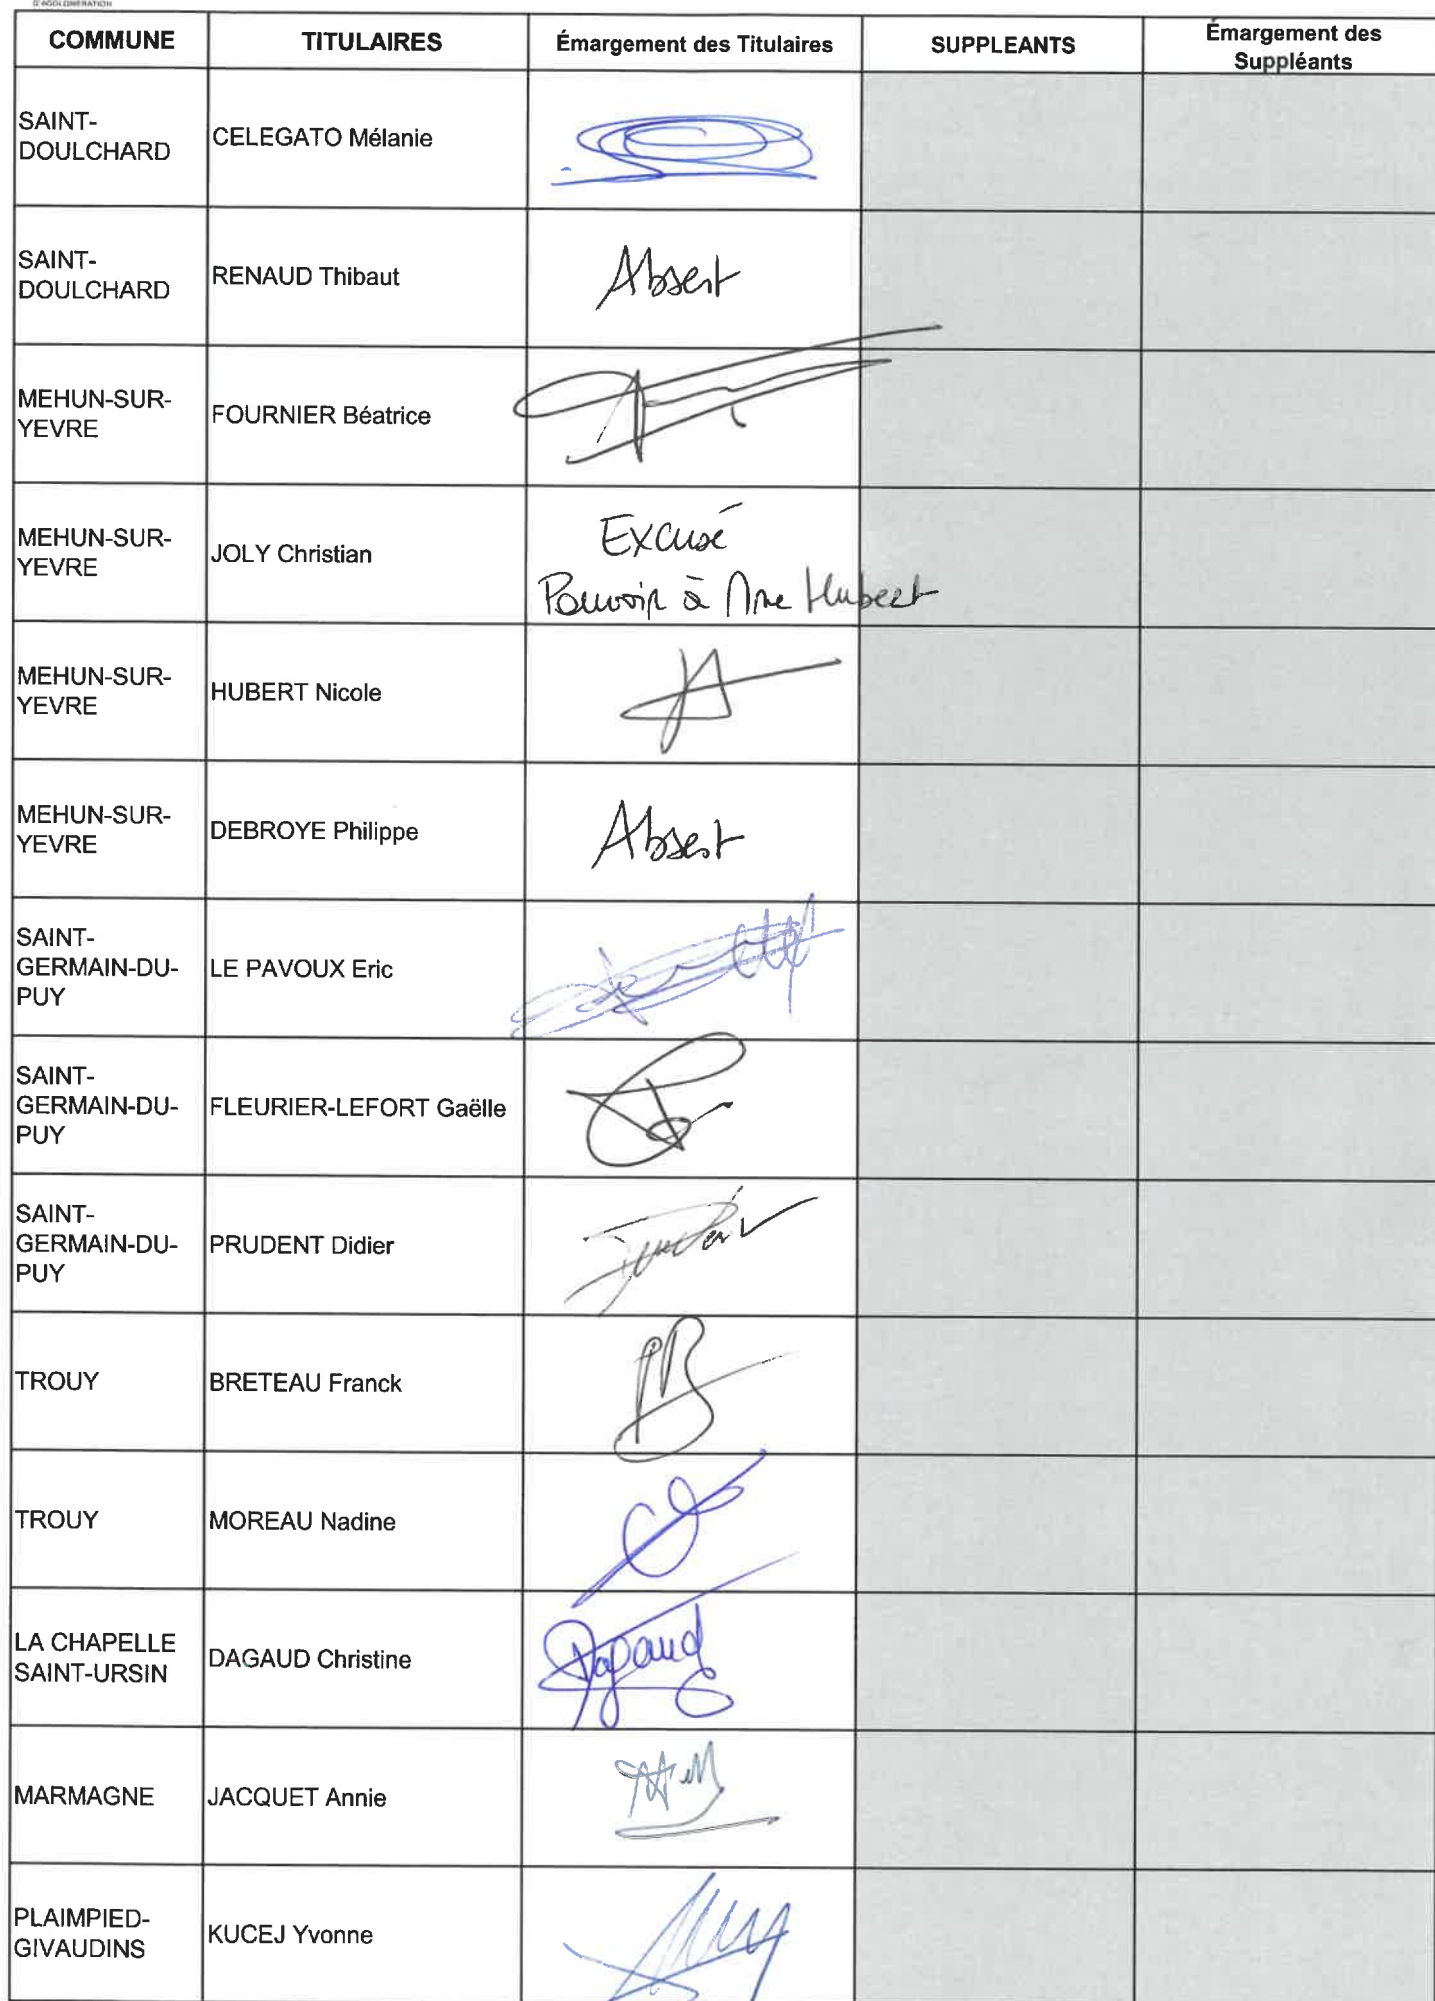 D'AGGLOMÉRATION
COMMUNE TITULAIRES Émargement des Titulaires SUPPLEANTS Émargement des
Suppléants
SAINT-
DOULCHARD
CELEGATO Mélanie
SAINT-
DOULCHARD
RENAUD Thibaut
Absent
MEHUN-SUR-
YEVRE
FOURNIER Béatrice
MEHUN-SUR-
YEVRE
JOLY Christian
Excusé
Pouvoir à Mme Hubert
MEHUN-SUR-
YEVRE
HUBERT Nicole
MEHUN-SUR-
YEVRE
DEBROYE Philippe
Absent
SAINT-
GERMAIN-DU-
PUY
LE PAVOUX Eric
SAINT-
GERMAIN-DU-
PUY
FLEURIER-LEFORT Gaëlle
SAINT-
GERMAIN-DU-
PUY
PRUDENT Didier
TROUY
BRETEAU Franck
TROUY
MOREAU Nadine
LA CHAPELLE
SAINT-URSIN
DAGAUD Christine
Dagaud
MARMAGNE
JACQUET Annie
PLAIMPIED-
GIVAUDINS
KUCEJ Yvonne